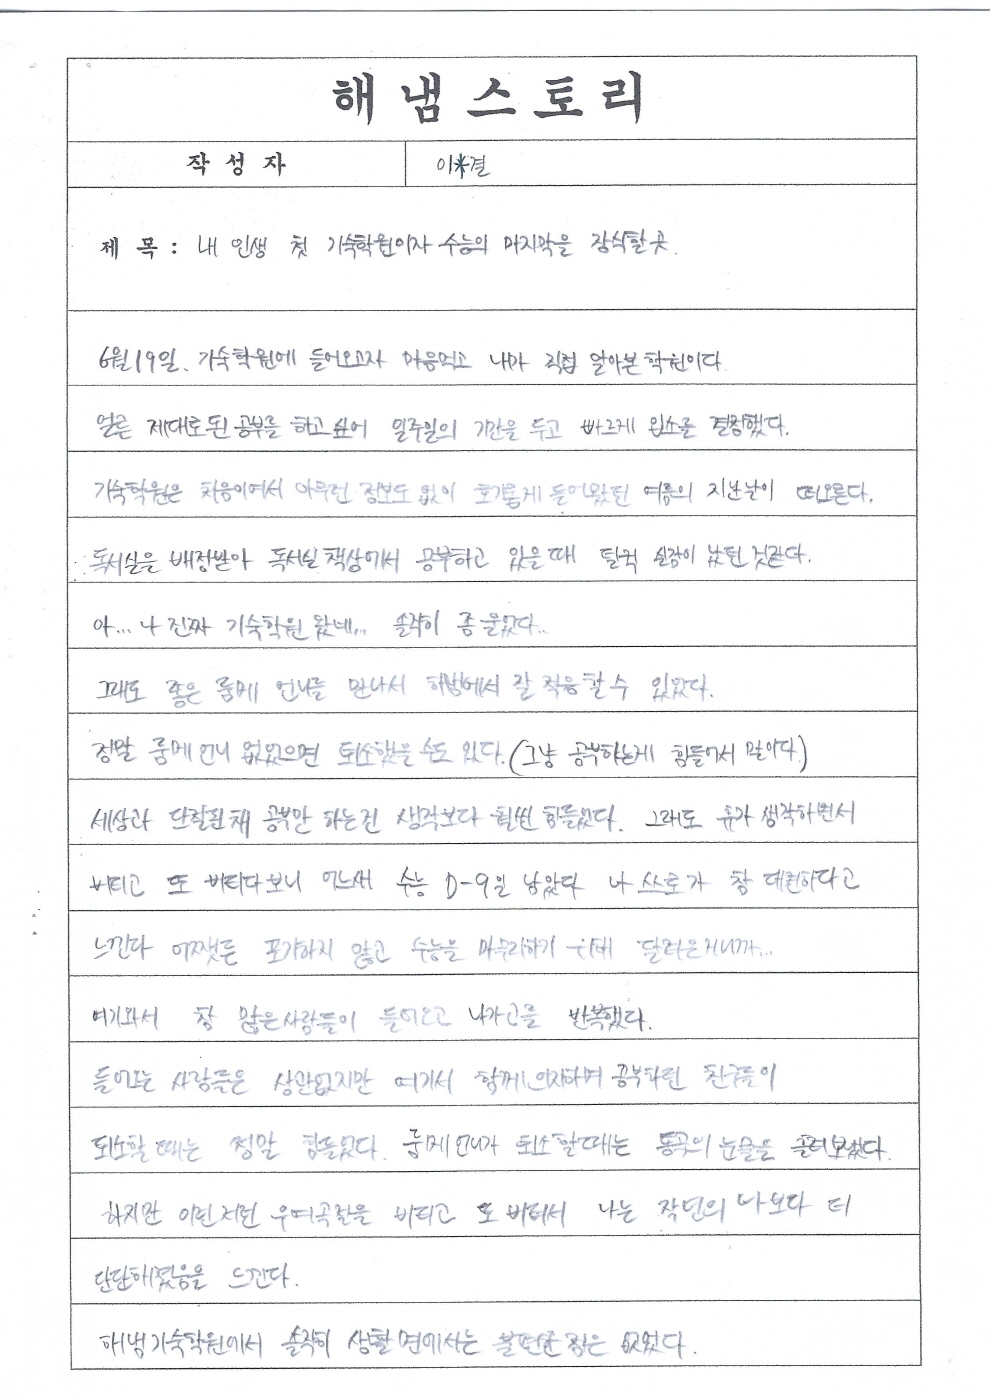 해냄스토리
작성자 이*결
제목: 내 인생 첫 기숙학원이자 수능의 마지막을 장식할 곳.
6월 19일. 기숙학원에 들어오고자 마음먹고 나마 직접 알아본 학원이다
얼른 제대로된 공부를 하고 싶어 일주일의 기간을 두고 빠르게 입소를 결정했다.
기숙학원은 처음이여서 아무런 정보도 없이 호기롭게 들어왔던 여름의 지난날이 떠오른다.
독서실을 배정받아 독서실 책상에서 공부하고 있을 때 덜컥 실감이 났던 것같다.
아... 나 진짜 기숙학원 왔네... 솔직히 좀 울었다..
그래도 좋은 룸메 언니를 만나서 해냄에서 잘 적응할 수 있었다.
정말 룸메언니 없었으면 퇴소했을 수도 있다. (그냥 공부하는게 힘들어서 말이다.)
세상과 단절된 채 공부만 하는건 생각보다 훨씬 힘들었다. 그래도 휴가 생각하면서
버티고 또 버티다보니 어느새 수능 D-9일 남았다 나 스스로가 참 대견하다고
느낀다 어쨋든 포기하지 않고 수능을 마무리하기 위해 달려온거니까...
여기와서 참 많은사람들이 들어오고 나가고를 반복했다.
들어오는 사람들은 상관없지만 여기서 함께 의지하며 공부하던 친구들이
퇴소할 때는 정말 힘들었다. 룸메언니가 퇴소할때는 통곡의 눈물을 흘려보냈다.
하지만 이런저런 우여곡절을 버티고 또 버텨서 나는 작년의 나보다 더
단단해졌음을 느낀다.
해냄기숙학원에서 솔직히 생활 면에서는 불편한 점은 없었다.